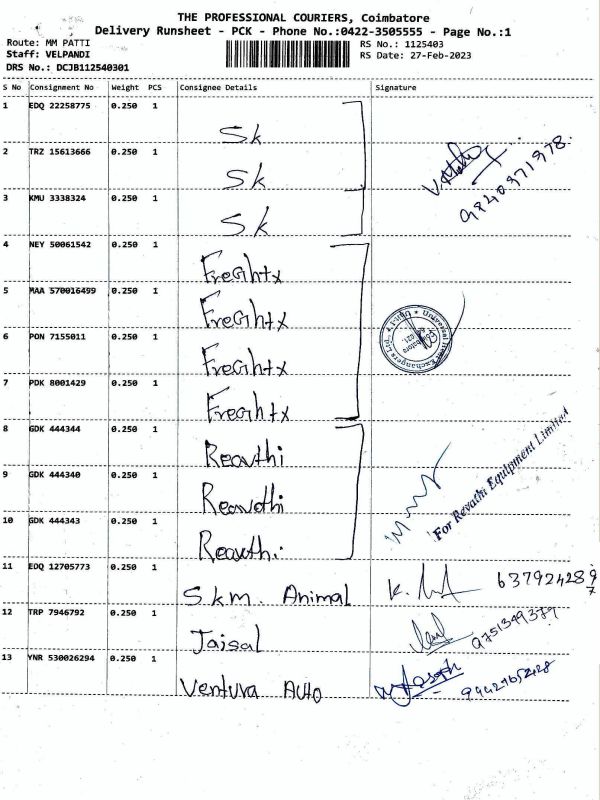 THE PROFESSIONAL COURIERS, Coimbatore
Delivery Runsheet - PCK - Phone No.:0422-3505555 - Page No.:1
Route: MM PATTI RS No.: 1125403
Staff: VELPANDI RS Date: 27-Feb-2023
DRS No.: DCJB112540301
S No Consignment No Weight PCS Consignee Details Signature
1 EDQ 22258775 0.250 1
Sk
2 TRZ 15613666 0.250 1
Sk
9840371978
3 KMU 3338324 0.250 1
Sk
4 NEY 50061542 0.250 1
Freightx
5 MAA 570016499 0.250 1
Freightx
6 PON 7155011 0.250 1
Freightx
7 PDK 8001429 0.250 1
Freightx
8 GDK 444344 0.250 1
Reavthi
9 GDK 444340 0.250 1
Reavthi
For Revathi Equipment Limited
10 GDK 444343 0.250 1
Reavthi
11 EDQ 12705773 0.250 1
S.k.m. Animal
12 TRP 7946792 0.250 1
Jaisal
9751349379
13 YNR 530026294 0.250 1
Ventura Auto